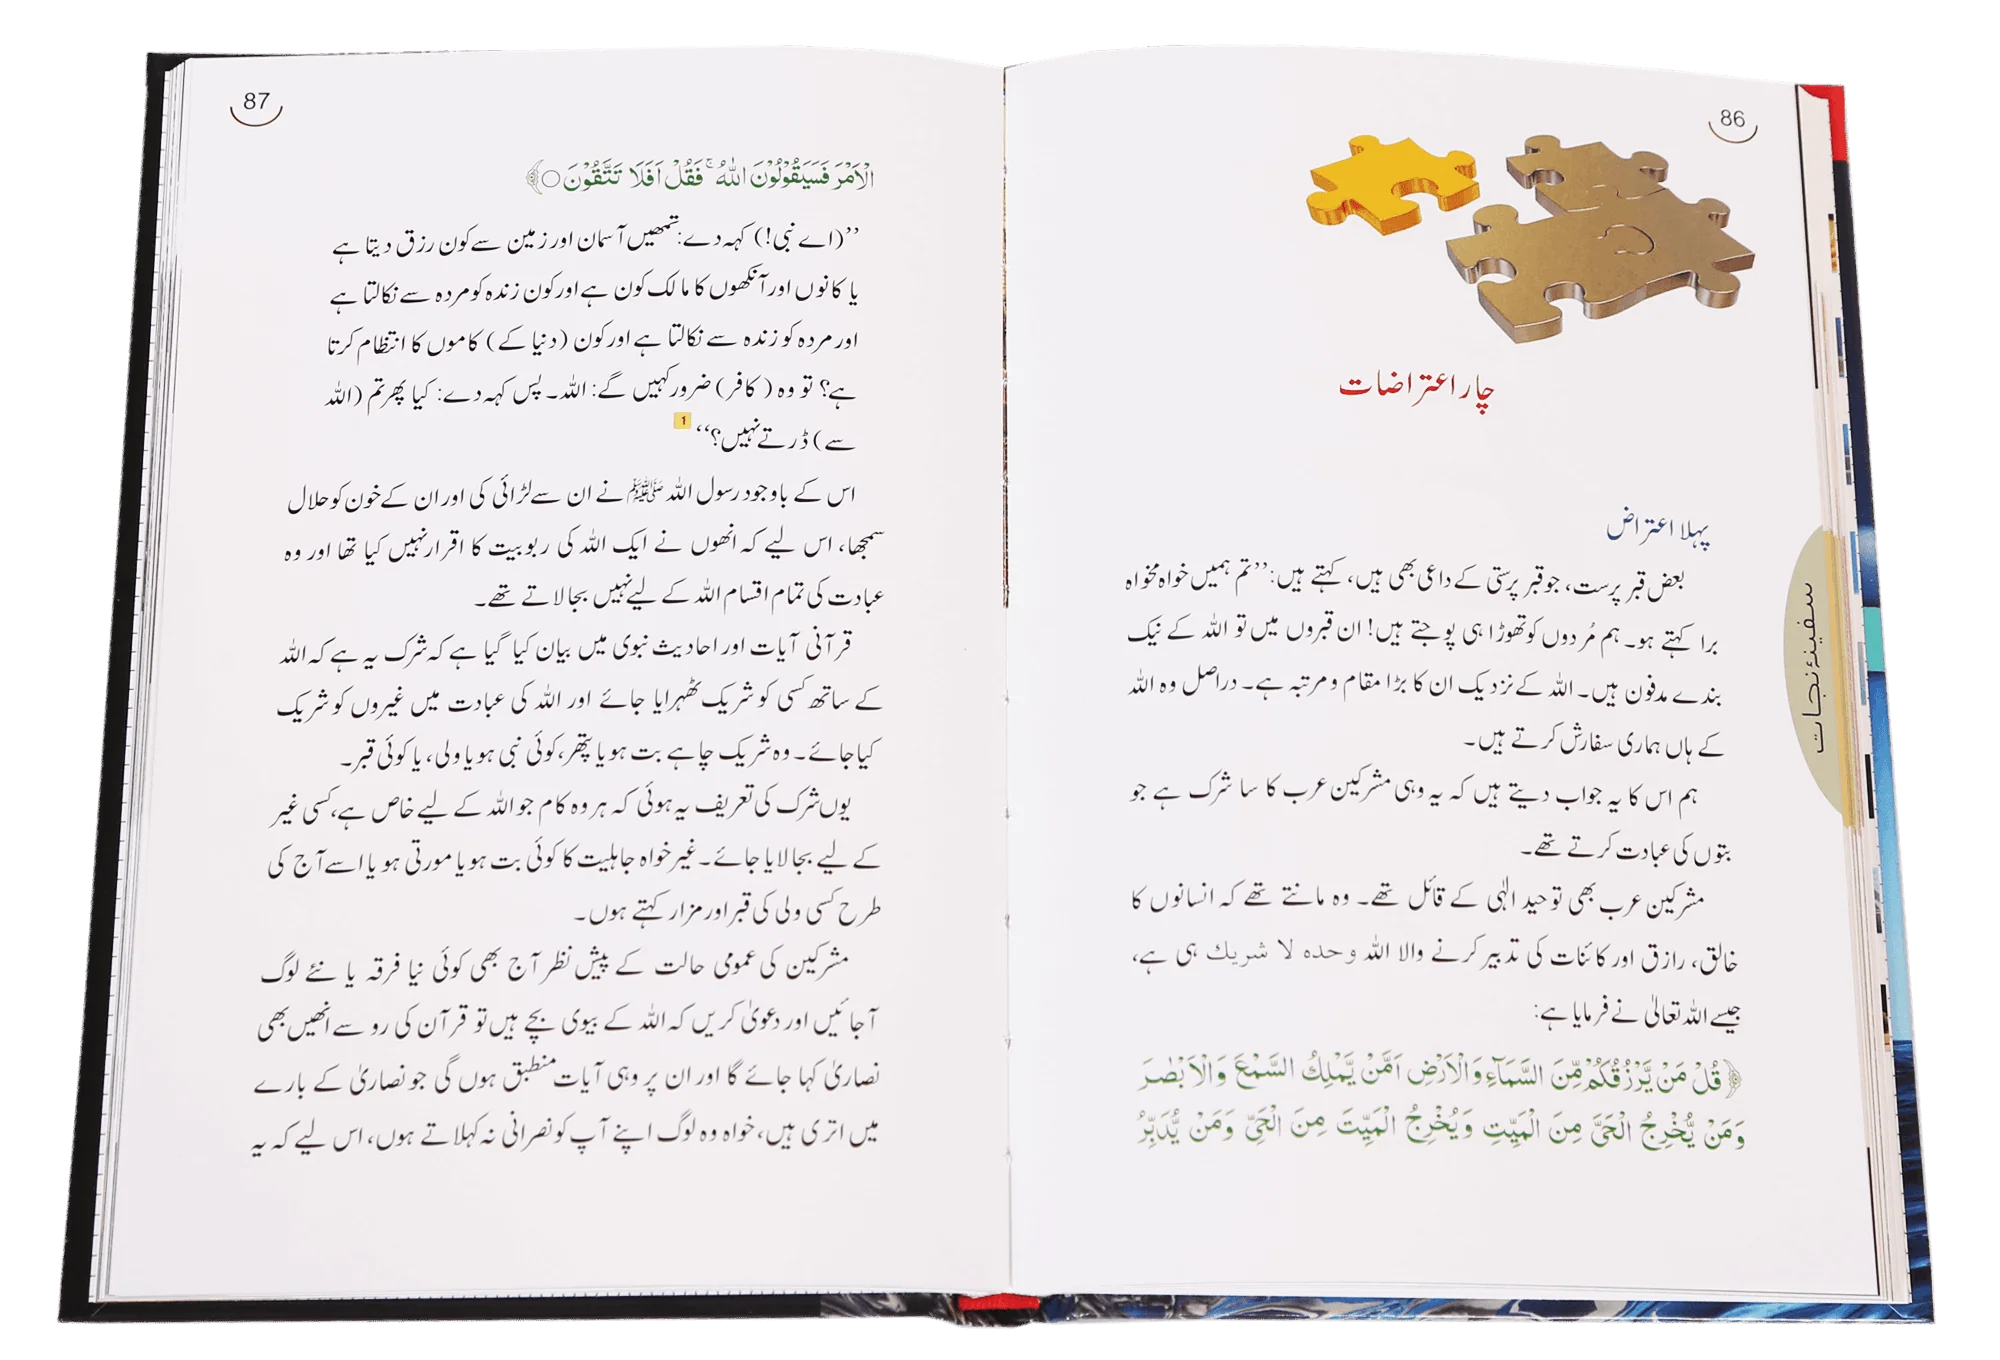 86
چار اعتراضات
پہلا اعتراض
بعض قبر پرست، جو قبر پرستی کے داعی بھی ہیں، کہتے ہیں: ’’تم ہمیں خواہ مخواہ
برا کہتے ہو۔ ہم مُردوں کو تھوڑا ہی پوجتے ہیں! ان قبروں میں تو اللہ کے نیک
بندے مدفون ہیں۔ اللہ کے نزدیک ان کا بڑا مقام و مرتبہ ہے۔ دراصل وہ اللہ
کے ہاں ہماری سفارش کرتے ہیں۔
ہم اس کا یہ جواب دیتے ہیں کہ یہ وہی مشرکین عرب کا سا شرک ہے جو
بتوں کی عبادت کرتے تھے۔
مشرکین عرب بھی توحید الٰہی کے قائل تھے۔ وہ مانتے تھے کہ انسانوں کا
خالق، رازق اور کائنات کی تدبیر کرنے والا اللہ وحدہ لا شریك ہی ہے،
جیسے اللہ تعالیٰ نے فرمایا ہے:
﴿قُلْ مَنْ يَّرْزُقُكُمْ مِّنَ السَّمَآءِ وَالْاَرْضِ اَمَّنْ يَّمْلِكُ السَّمْعَ وَالْاَبْصٰرَ
وَمَنْ يُّخْرِجُ الْحَيَّ مِنَ الْمَيِّتِ وَيُخْرِجُ الْمَيِّتَ مِنَ الْحَيِّ وَمَنْ يُّدَبِّرُ
سفینۂ نجات
87
الْاَمْرَ فَسَيَقُوْلُوْنَ اللّٰهُ ۚ فَقُلْ اَفَلَا تَتَّقُوْنَ ○﴾
’’(اے نبی!) کہہ دے: تمھیں آسمان اور زمین سے کون رزق دیتا ہے
یا کانوں اور آنکھوں کا مالک کون ہے اور کون زندہ کو مردہ سے نکالتا ہے
اور مردہ کو زندہ سے نکالتا ہے اور کون (دنیا کے) کاموں کا انتظام کرتا
ہے؟ تو وہ (کافر) ضرور کہیں گے: اللہ۔ پس کہہ دے: کیا پھر تم (اللہ
سے) ڈرتے نہیں؟‘‘ 1
اس کے باوجود رسول اللہ ﷺ نے ان سے لڑائی کی اور ان کے خون کو حلال
سمجھا، اس لیے کہ انھوں نے ایک اللہ کی ربوبیت کا اقرار نہیں کیا تھا اور وہ
عبادت کی تمام اقسام اللہ کے لیے نہیں بجا لاتے تھے۔
قرآنی آیات اور احادیث نبوی میں بیان کیا گیا ہے کہ شرک یہ ہے کہ اللہ
کے ساتھ کسی کو شریک ٹھہرایا جائے اور اللہ کی عبادت میں غیروں کو شریک
کیا جائے۔ وہ شریک چاہے بت ہو یا پتھر، کوئی نبی ہو یا ولی، یا کوئی قبر۔
یوں شرک کی تعریف یہ ہوئی کہ ہر وہ کام جو اللہ کے لیے خاص ہے، کسی غیر
کے لیے بجا لایا جائے۔ غیر خواہ جاہلیت کا کوئی بت ہو یا مورتی ہو یا اسے آج کی
طرح کسی ولی کی قبر اور مزار کہتے ہوں۔
مشرکین کی عمومی حالت کے پیش نظر آج بھی کوئی نیا فرقہ یا نئے لوگ
آ جائیں اور دعویٰ کریں کہ اللہ کے بیوی بچے ہیں تو قرآن کی رو سے انھیں بھی
نصاریٰ کہا جائے گا اور ان پر وہی آیات منطبق ہوں گی جو نصاریٰ کے بارے
میں اتری ہیں، خواہ وہ لوگ اپنے آپ کو نصرانی نہ کہلاتے ہوں، اس لیے کہ یہ